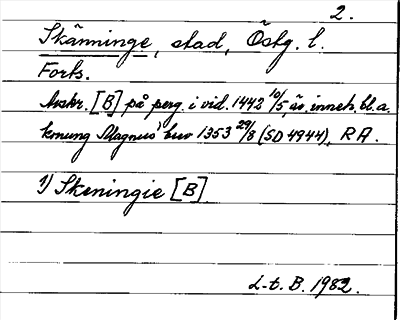 2.
Skänninge, stad, Östg. l.
Forts.
Avskr. [B] på perg. i vid. 1442 10/5, är inneh. bl.a.
konung Magnus' brev 1353 29/8 (SD 4944), RA.
1) Skeningie [B]
L-t. B. 1982.